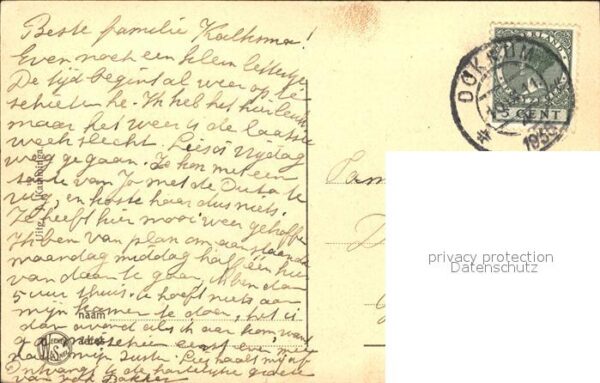 Beste familie Kalksma!
Even noch een klein lettertje
De tijd begint al weer op te
schieten he. Ik heb het hier leuk
maar het weer is de laatste
week slecht. Lies is vrijdag
weg ge gaan. Ze kon met een
tante van Jo met de Auto te
rug, en koste haar dus niets.
Ze heeft hier mooi weer getroffen
Ik ben van plan om aanstaande
maandag middag half één hier
van daan te gaan, ik ben dan
5 uur thuis. U hoeft niets aan
mijn kamer te doen, het is
dan avond als ik aan kom, want
ga misschien eerst even mee
naar mijn zuster. Lies haalt mij af
Ontvangt U de hartelijke groeten
van
Bakker
naam
DOKKUM
1935
NEDERLAND
5 CENT
Fam
privacy protection
Datenschutz